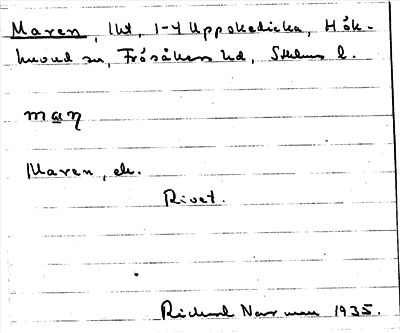 Maren, lht, 1-4 Uppskedicka, Hök-
huvud sn, Frösåkers hd, Sthlms l.
maṇ
Maren, ek.
Rivet.
Richard Norrman 1935.